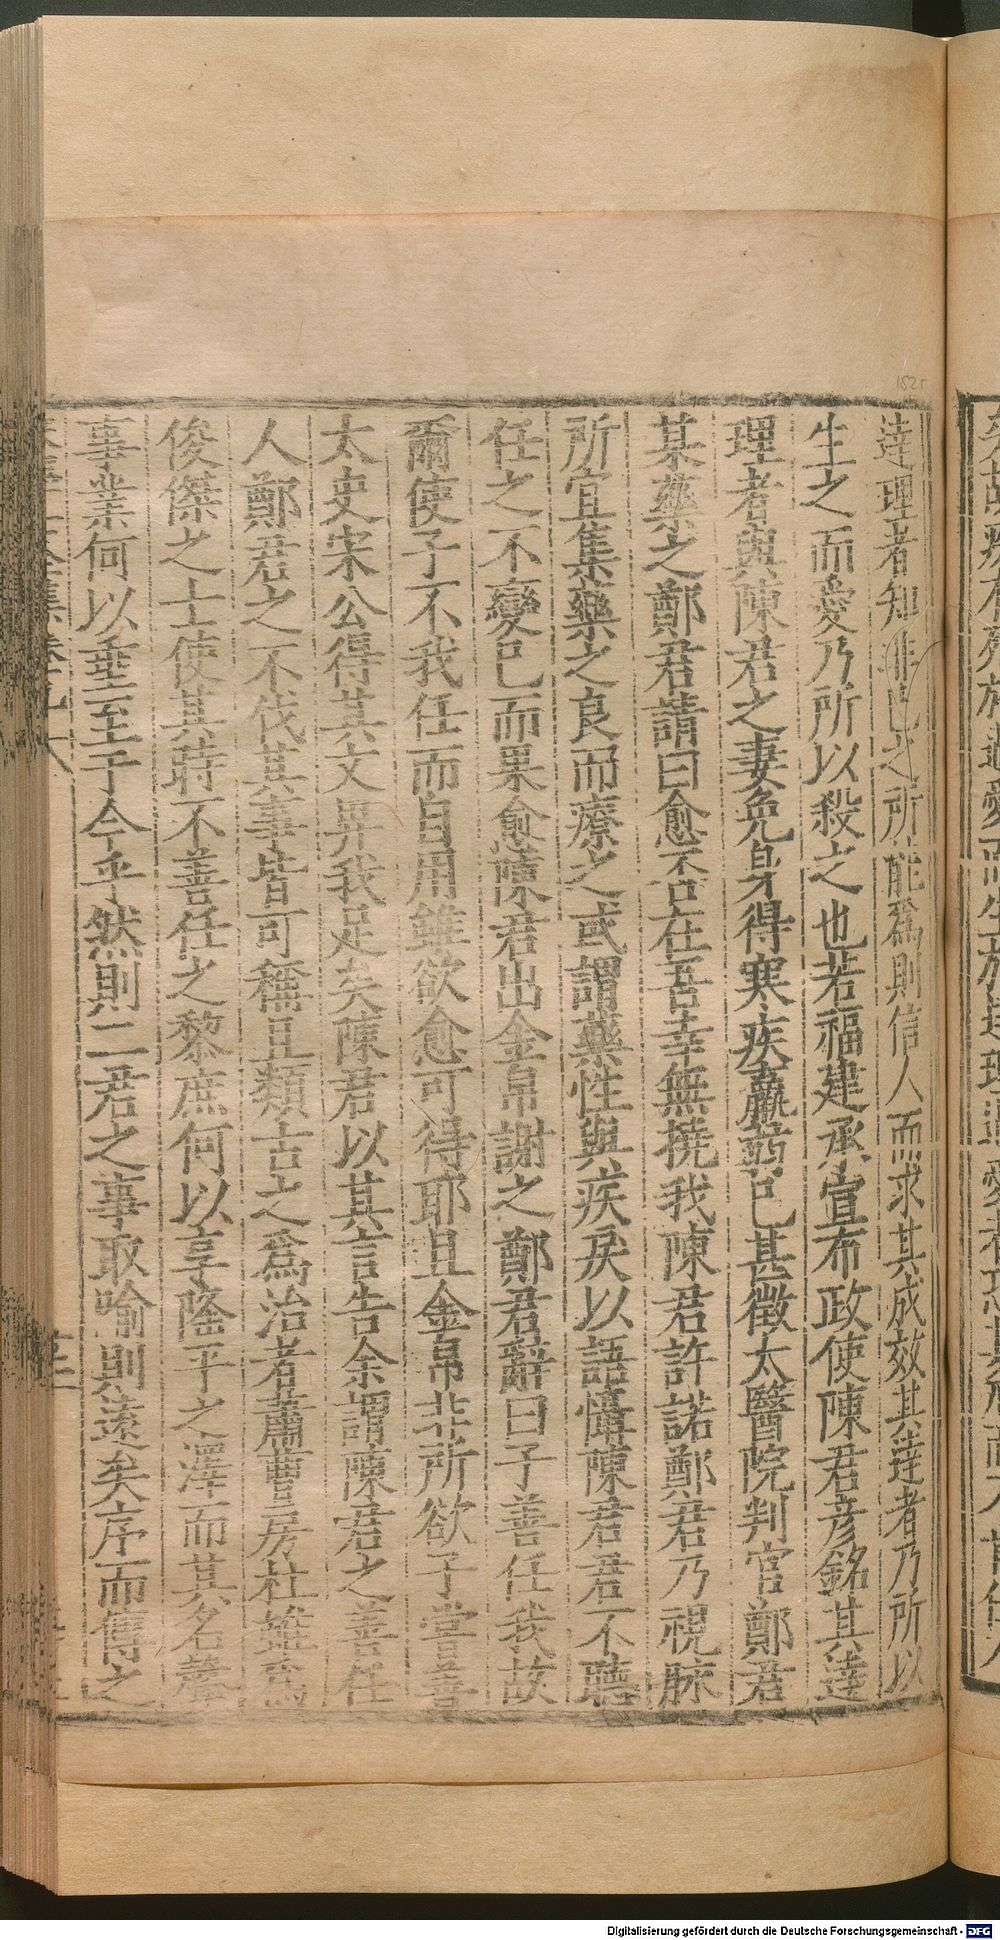 達理者知非己之所能爲則信人而求其成效其達者乃所以
生之而愛乃所以殺之也若福建承宣布政使陳君彦銘其達
理者與陳君之妻免身得寒疾羸莭已甚徵太醫院判官鄭君
某藥之鄭君請曰愈否在吾幸無撓我陳君許諾鄭君乃視脉
所宜集藥之良而療之或謂藥性與疾戾以語慴陳君君不聽
任之不變已而果愈陳君出金帛謝之鄭君辭曰子善任我故
爾使子不我任而自用雖欲愈可得耶且金帛非所欲子嘗善
太史宋公得其文畀我足矣陳君以其言告余謂陳君之善任
人鄭君之不伐其事皆可稱且類古之爲治者蕭曹房杜雖爲
俊傑之士使其時不善任之黎庶何以享隆平之澤而其名聲
事業何以垂至于今乎然則二君之事取喻則遠矣序而傳之
1525
Digitalisierung gefördert durch die Deutsche Forschungsgemeinschaft - DFG